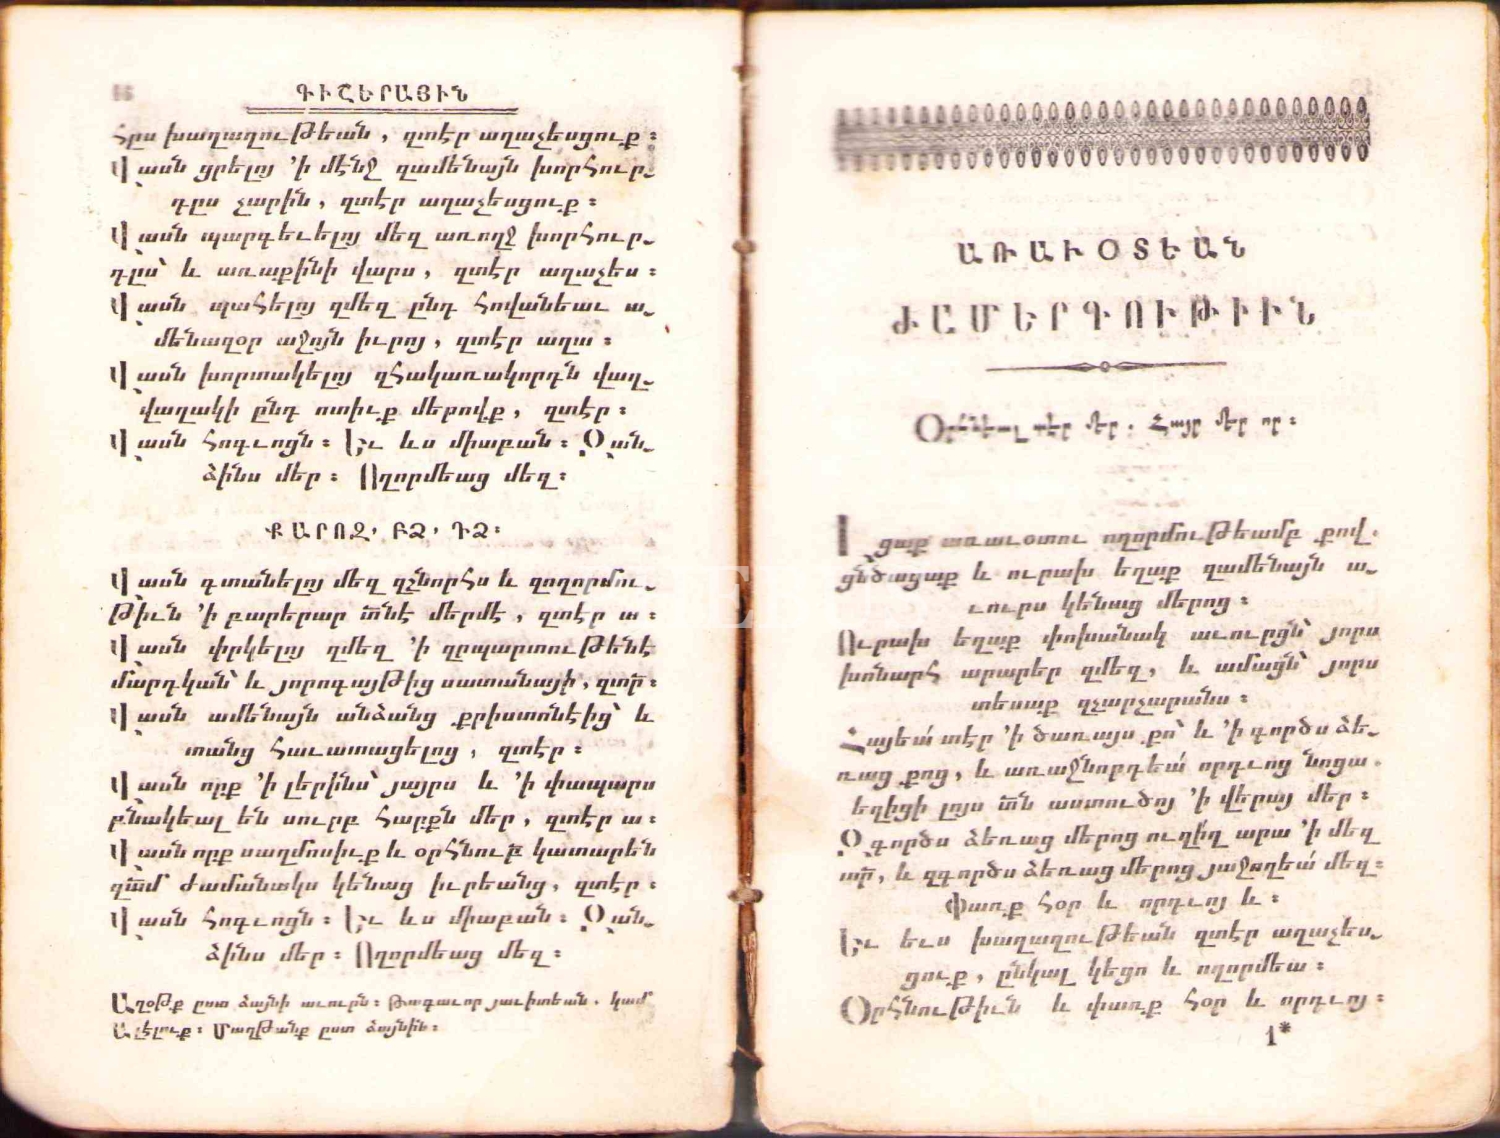 ԳԻՇԵՐԱՅԻՆ
հրս խաղաղութեան, զտէր աղաչեսցուք։
Վասն ցրելոյ ՚ի մէնջ զամենայն խորհուր֊
դըս չարին, զտէր աղաչեսցուք։
Վասն պարգեւելոյ մեզ առողջ խորհուր֊
դըս՝ և առաքինի վարս, զտէր աղաչես։
Վասն պահելոյ զմեզ ընդ հովանեաւ ա֊
մենազօր աջոյն իւրոյ, զտէր աղա։
Վասն խորտակելոյ զհակառակորդ՛ն վաղ֊
վաղակի ընդ ոտիւք մերովք, զտէր։
Վասն հոգւոցն։ Եւ ևս միաբան։ Զան֊
ձինս մեր։ Ողորմեաց մեզ։
ՔԱՐՈԶ՚ ԲՁ՚ ԴՁ։
Վասն գտանելոյ մեզ զշնորհս և զողորմու֊
թիւն ՚ի բարերար տնէ մերմէ, զտէր ա։
Վասն փրկելոյ զմեզ ՚ի զրպարտութենէ
մարդկան՝ և յորոգայթից սատանայի, զտր։
Վասն ամենայն անձանց քրիստոնէից՝ և
տանց հաւատացելոց, զտէր։
Վասն որք ՚ի լերինս՝ յայրս և ՚ի փապարս
բնակեալ են սուրբ հարքն մեր, զտէր ա։
Վասն որք սաղմոսիւք և օրհնուբ կատարեն
զամ ժամանակս կենաց իւրեանց, զտէր։
Վասն հոգւոցն։ Եւ ևս միաբան։ Զան֊
ձինս մեր։ Ողորմեաց մեզ։
Աղօթք ըստ ձայնի աւուրն։ Թագաւոր յաւիտեան. կամ՝
Ալէլուք։ Մաղթանք ըստ ձայնին։
ԱՌԱՒՕՏԵԱՆ
ԺԱՄԵՐԳՈՒԹԻՒՆ
Օրհնեալ տէր մեր. Հայր մեր որ։
Լցաք առաւօտու ողորմութեամբ քով.
ցնծացաք և ուրախ եղաք զամենայն ա֊
ւուրս կենաց մերոց։
Ուրախ եղաք փոխանակ աւուրցն՝ յորս
խոնարհ արարեր զմեզ, և ամացն՝ յորս
տեսաք զչարչարանս։
Հայեա՛ տէր ՚ի ծառայս քո՝ և ՚ի գործս ձե֊
ռաց քոց, և առաջնորդեա՛ որդւոց նոցա.
եղիցի լոյս տն աստուծոյ ՚ի վերայ մեր։
Զգործս ձեռաց մերոց ուղիղ արա ՚ի մեզ
տր, և զգործս ձեռաց մերոց յաջողեա՛ մեզ։
Փառք հօր և որդւոյ և։
Եւ եւս խաղաղութեան զտէր աղաչես֊
ցուք, ընկալ կեցո և ողորմեա։
Օրհնութիւն և փառք հօր և որդւոյ։
1*